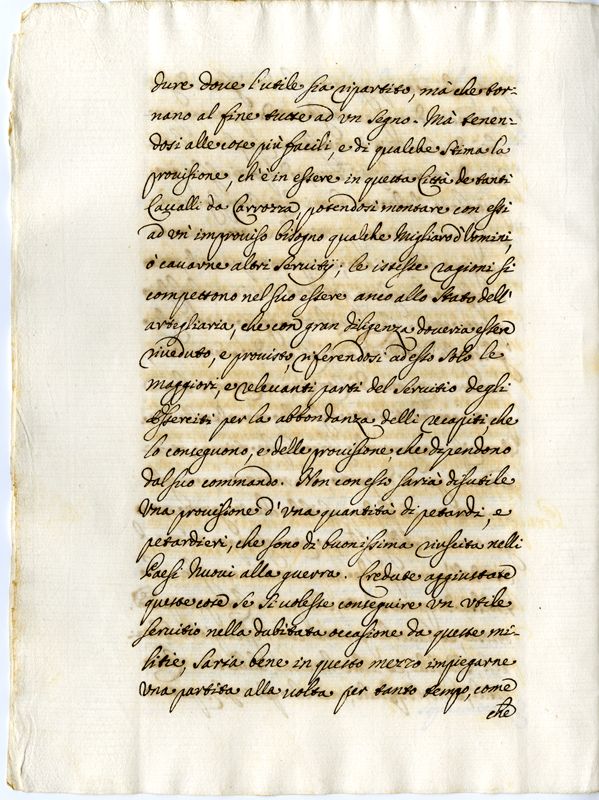 dure dove l'utile sia ripartito, mà che tor=
nano al fine tutte ad vn segno. Mà tenen=
dosi alle cose più facili, e di qualche stima la
provisione, ch'è in essere in questa Città de tanti
Cavalli da Carrozza, potendosi montare con essi
ad vn' improviso bisogno qualche Migliaro d'Uomini,
ò cavarne altri servitij; le istesse ragioni si
compettono nel suo essere anco allo stato dell'
artegliaria, che con gran diligenza doveria essere
riveduto, e provisto, riferendosi ad esso solo le
maggiori, e relevanti parti del servitio degli
Esserciti per la abbondanza delli recapiti, che
lo conseguono, e delle provisione, che dipendono
dal suo commando. Non con esso saria disutile
vna provisione d'vna quantità di petardi, e
petardieri, che sono di buonissima riuscita nelli
Paesi Nuovi alla guerra. Credute aggiustate
queste cose se si volesse conseguire vn vtile
servitio nella dubitata occasione da queste mi=
litie, saria bene in questo mezzo impiegarne
vna partita alla volta per tanto tempo, come
che